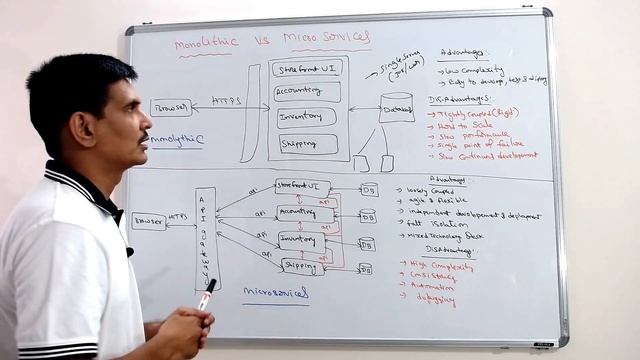 Monolithic vs Microservices
Store front UI
Accounting
Inventory
Shipping
Browser
HTTPS
Monolythic
Single Server
Database
Advantages:
→ Low Complexity
→ Easy to develop, test & deploy
Dis-Advantages:
→ Tightly Coupled (Rigid)
→ Hard to Scale
→ Slow performance
→ Single point of failure
→ Slow Continuous development
Browser
HTTPS
API gateway
api
api
api
api
Store front UI
Accounting
Inventory
Shipping
api
api
api
DB
DB
DB
DB
Microservices
Advantages
→ loosely Coupled
→ agile & flexible
→ independent development & deployment
→ falt isolation
→ mixed Technology Stack
DisAdvantages
→ High Complexity
→ Consistency
→ Automation
→ debugging